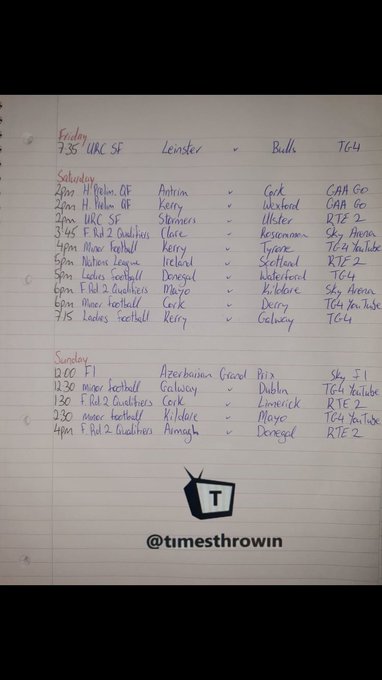 Friday
7.35 URC SF Leinster v Bulls TG4
Saturday
2pm H Prelim. QF Antrim v Cork GAA GO
2pm H. Prelim QF Kerry v Wexford GAA GO
2pm URC SF Stormers v Ulster RTE 2
3'45 F. Rd 2 Qualifiers Clare v Roscommon Sky Arena
4pm Minor Football Kerry v Tyrone TG4 YouTube
5pm Nations League Ireland v Scotland RTE 2
5pm Ladies Football Donegal v Waterford TG4
6pm F. Rd 2 Qualifiers Mayo v Kildare Sky Arena
6pm Minor football Cork v Derry TG4 YouTube
7'15 Ladies football Kerry v Galway TG4
Sunday
12.00 F1 Azerbaijan Grand Prix Sky F1
12.30 minor football Galway v Dublin TG4 YouTube
1.30 F. Rd. 2 Qualifiers Cork v Limerick RTE 2
2.30 minor football Kildare v Mayo TG4 YouTube
4pm F. Rd 2 Qualifiers Armagh v Donegal RTE 2
T
@timesthrowin